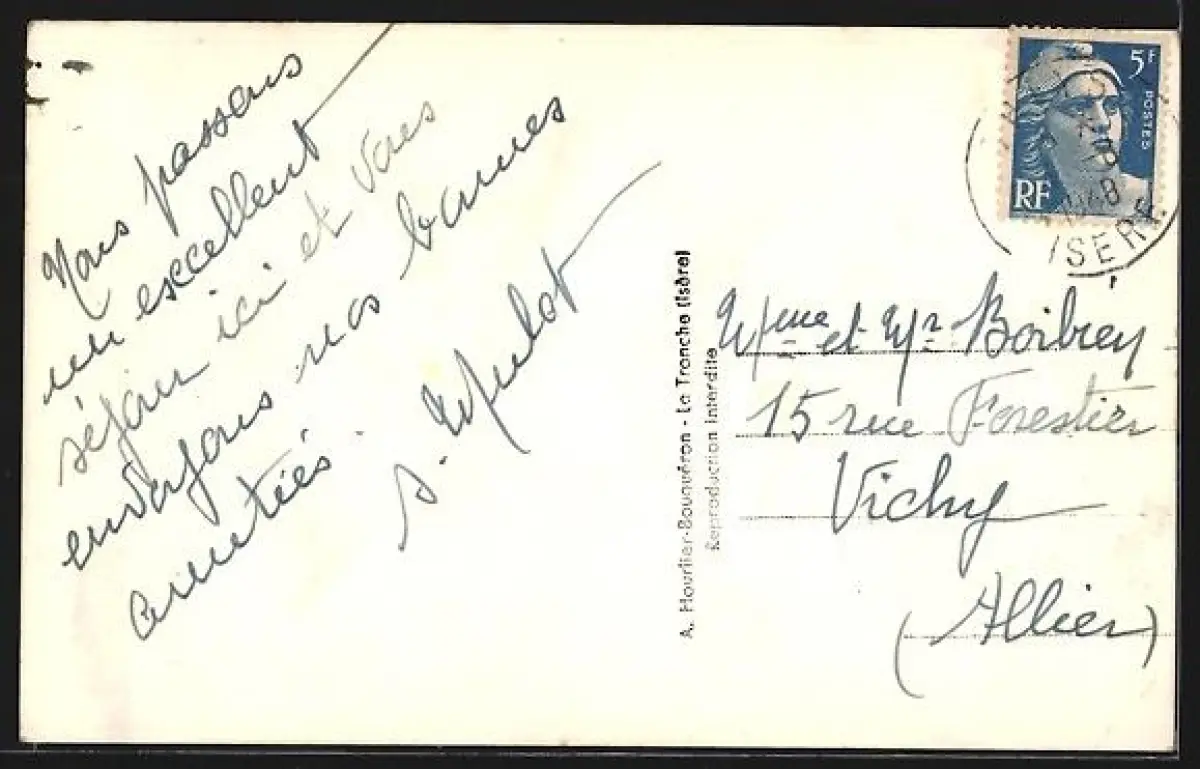 Nous passons
un excellent
séjour ici et vous
envoyons nos bonnes
amitiés.
S. Mulot
A. Hourlier-Bouquéron - La Tronche (Isère)
Reproduction Interdite
5F
POSTES
RF
ISERE
Mme et Mr Boibrey
15 rue Forestier
Vichy
(Allier)